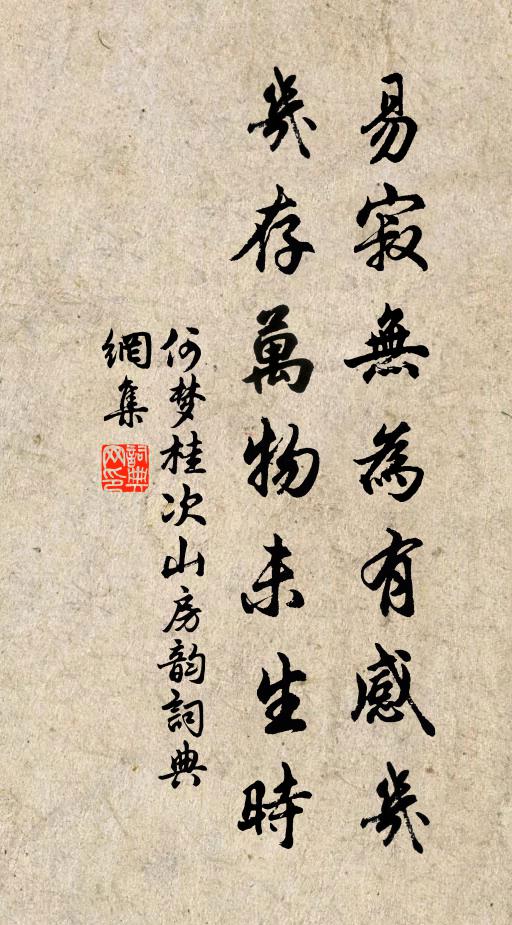 易寂無為有感幾
幾存萬物未生時
何梦桂次山房韵詞典
網集
詞典
网印